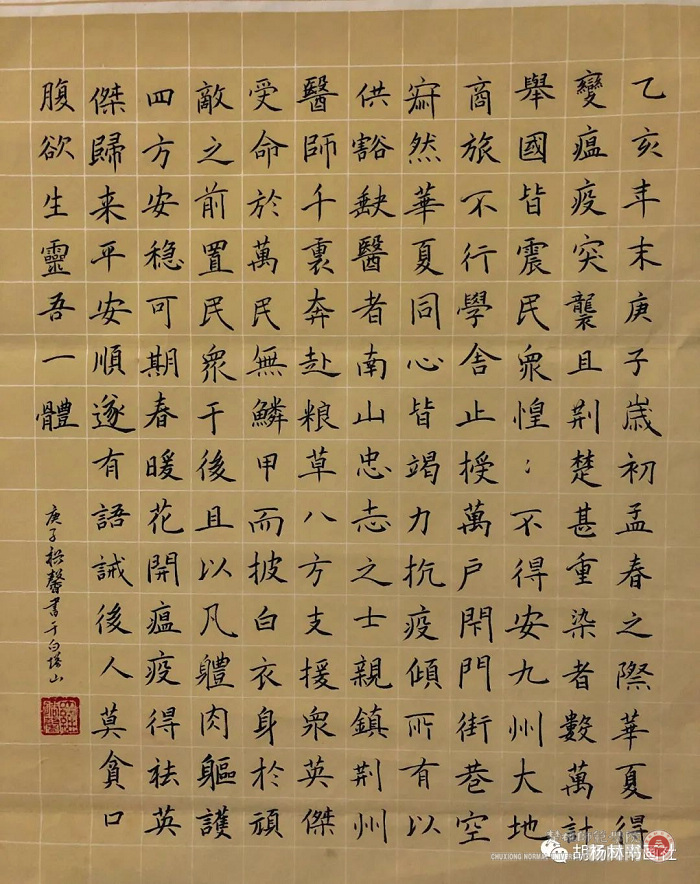 乙亥年末庚子歲初孟春之際華夏得
變瘟疫突襲且荆楚甚重染者數萬計
舉國皆震民衆惶〻不得安九州大地
商旅不行學舍止授萬戸閇門街巷空
寂然華夏同心皆竭力抗疫傾所有以
供豁缺醫者南山忠志之士親鎮荆州
醫師千裏奔赴粮草八方支援衆英傑
受命於萬民無鱗甲而披白衣身於頑
敵之前置民衆于後且以凡軆肉軀護
四方安穏可期春暖花開瘟疫得祛英
傑歸来平安順遂有語誡後人莫貪口
腹欲生靈吾一體
庚子松馨書于白塔山
楚雄師範學院
CHUXIONG NORMAL UNIVERSITY
胡杨林书画社